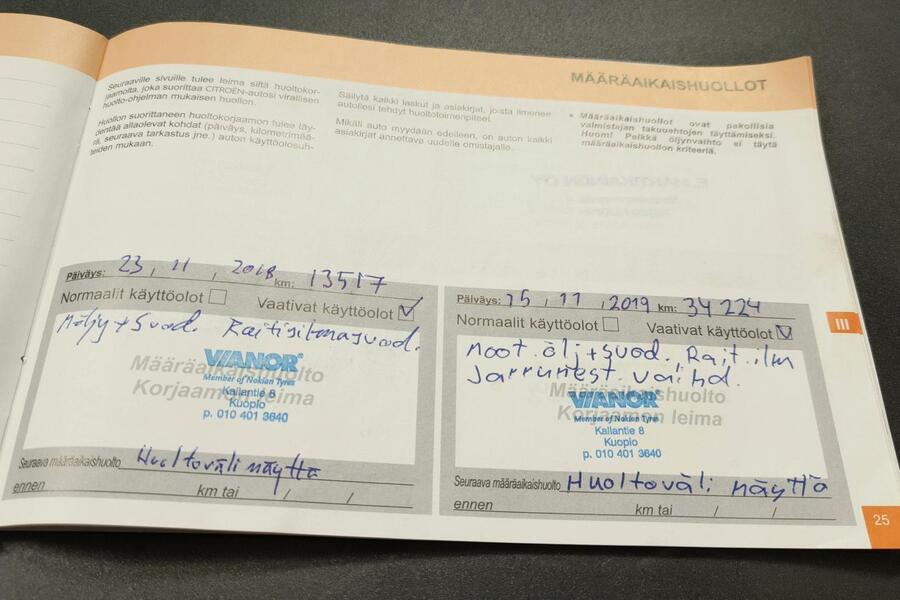 MÄÄRÄAIKAISHUOLLOT
Seuraaville sivuille tulee leima siltä huoltokor-
jaamolta, joka suorittaa CITROËN-autosi virallisen
huolto-ohjelman mukaisen huollon.
Huollon suorittaneen huoltokorjaamon tulee täy-
dentää allaolevat kohdat (päiväys, kilometrimää-
rä, seuraava tarkastus jne.) auton käyttöolosuh-
teiden mukaan.
Säilytä kaikki laskut ja asiakirjat, joista ilmenee
autollesi tehdyt huoltotoimenpiteet.
Mikäli auto myydään edelleen, on auton kaikki
asiakirjat annettava uudelle omistajalle.
• Määräaikaishuollot ovat pakollisia
valmistajan takuuehtojen täyttämiseksi.
Huom! Pelkkä öljynvaihto ei täytä
määräaikaishuollon kriteeriä.
Päiväys: 23 / 11 / 2018 km: 13517
Normaalit käyttöolot Vaativat käyttöolot
Möljy+suod. Raitisilmasuod.
Määräaikaishuolto
Korjaamon leima
VIANOR
Member of Nokian Tyres
Kallantie 8
Kuopio
p. 010 401 3640
Seuraava määräaikaishuolto Huoltoväli näyttö
ennen km tai / /
Päiväys: 15 / 11 / 2019 km: 34 224
Normaalit käyttöolot Vaativat käyttöolot
Moot. ölj+suod. Rait.ilm
Jarrunest. vaihd.
Määräaikaishuolto
Korjaamon leima
VIANOR
Member of Nokian Tyres
Kallantie 8
Kuopio
p. 010 401 3640
Seuraava määräaikaishuolto Huoltoväli näyttö
ennen km tai / /
III
25